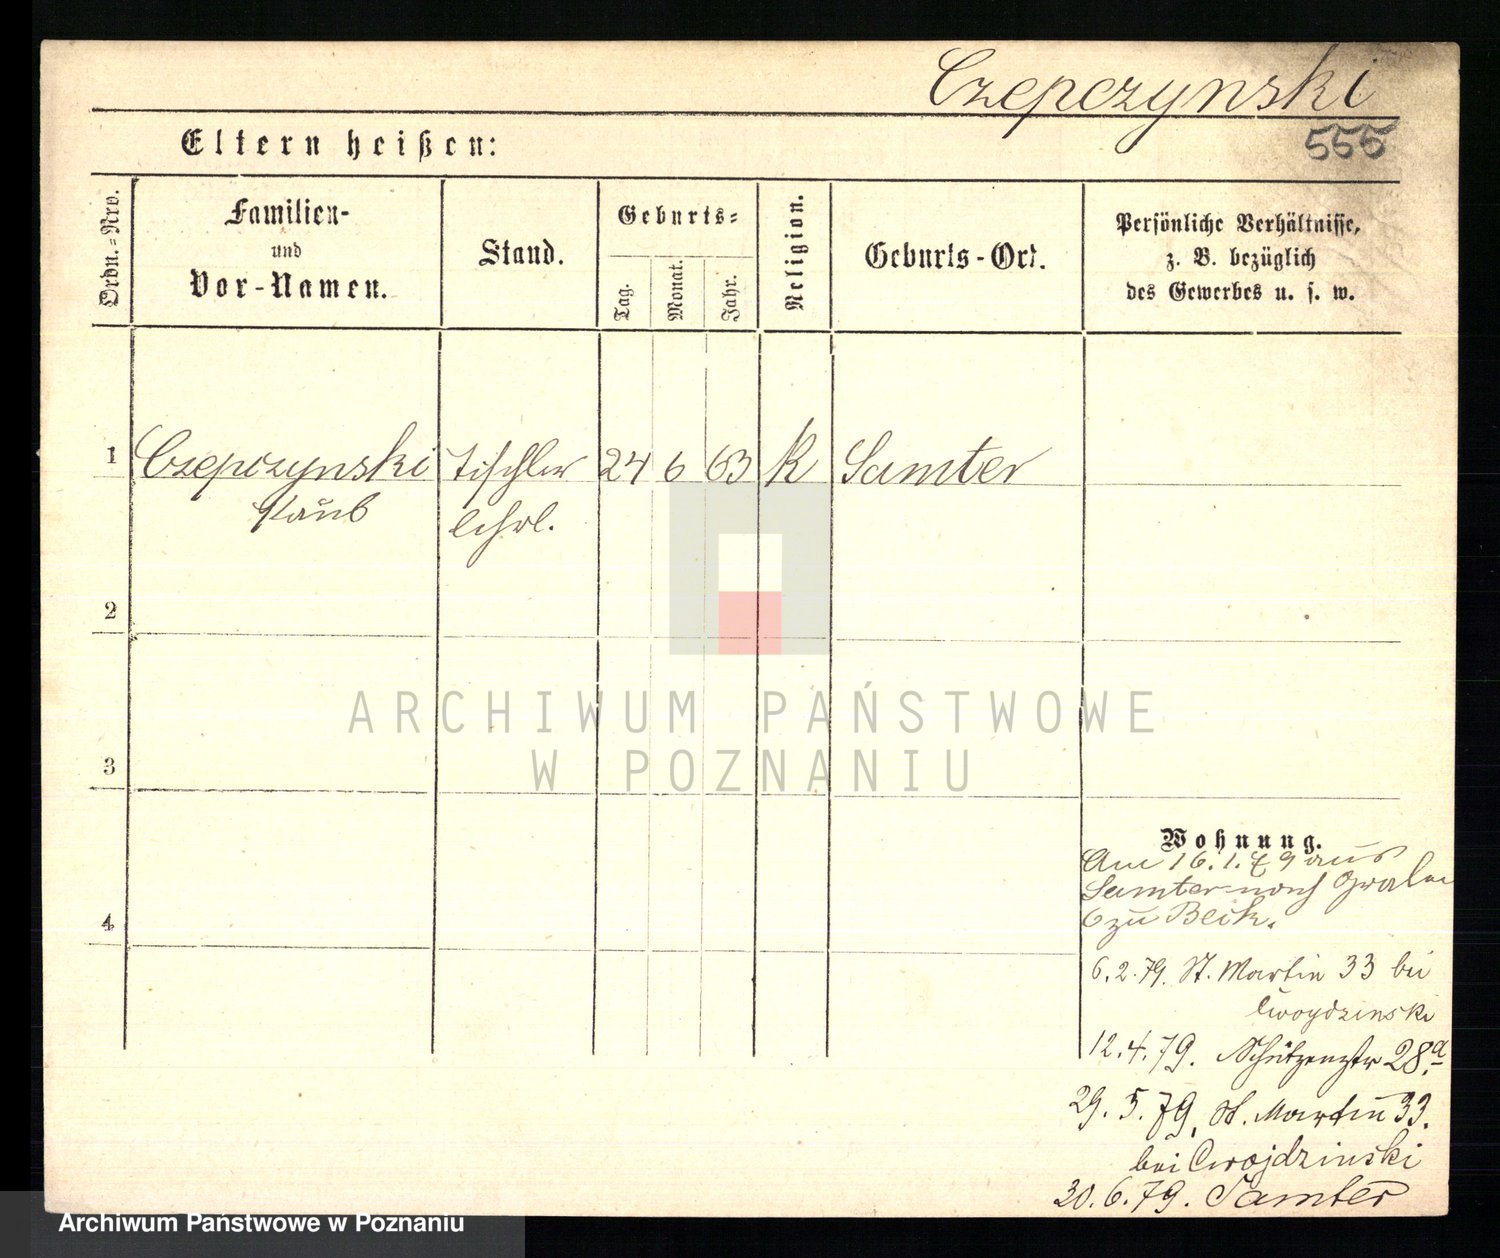 Czepczynski
555
Eltern heißen:
Ordn.=Nro.
Familien-
und
Vor-Namen.
Stand.
Geburts=
Tag.
Monat.
Jahr.
Religion.
Geburts-Ort.
Persönliche Verhältnisse,
z. B. bezüglich
des Gewerbes u. s. w.
1
Czepczynski Tischler 24 6 63 K Samter
lehrl.
2
ARCHIWUM PAŃSTWOWE
W POZNANIU
3
Wohnung.
Am 16.1.79 aus
Samter nach
6 zu Beik.
4
6.2.79. St. Martin 33 bei
Cwoydzinski
12.4.79. Schützenstr 28a
29.5.79. St. Martin 33.
bei Cwojdzinski
30.6.79. Samter
Archiwum Państwowe w Poznaniu